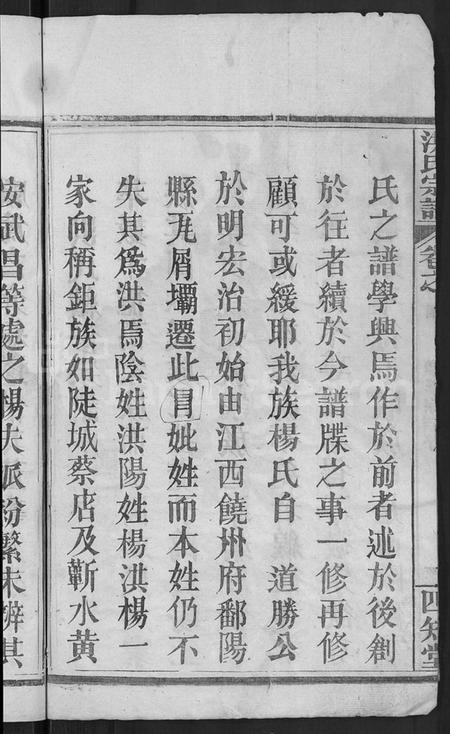 洪氏宗譜
卷之
四知堂
氏之譜學興焉作於前者述於後創
於往者續於今譜牒之事一修再修
顧可或緩耶我族楊氏自　道勝公
於明宏治初始由江西饒州府鄱陽
縣瓦屑壩遷此冐妣姓而本姓仍不
失其爲洪焉陰姓洪陽姓楊洪楊一
家向稱鉅族如陡城蔡店及蘄水黃
安武昌等處之楊夫派紛繁未辨其